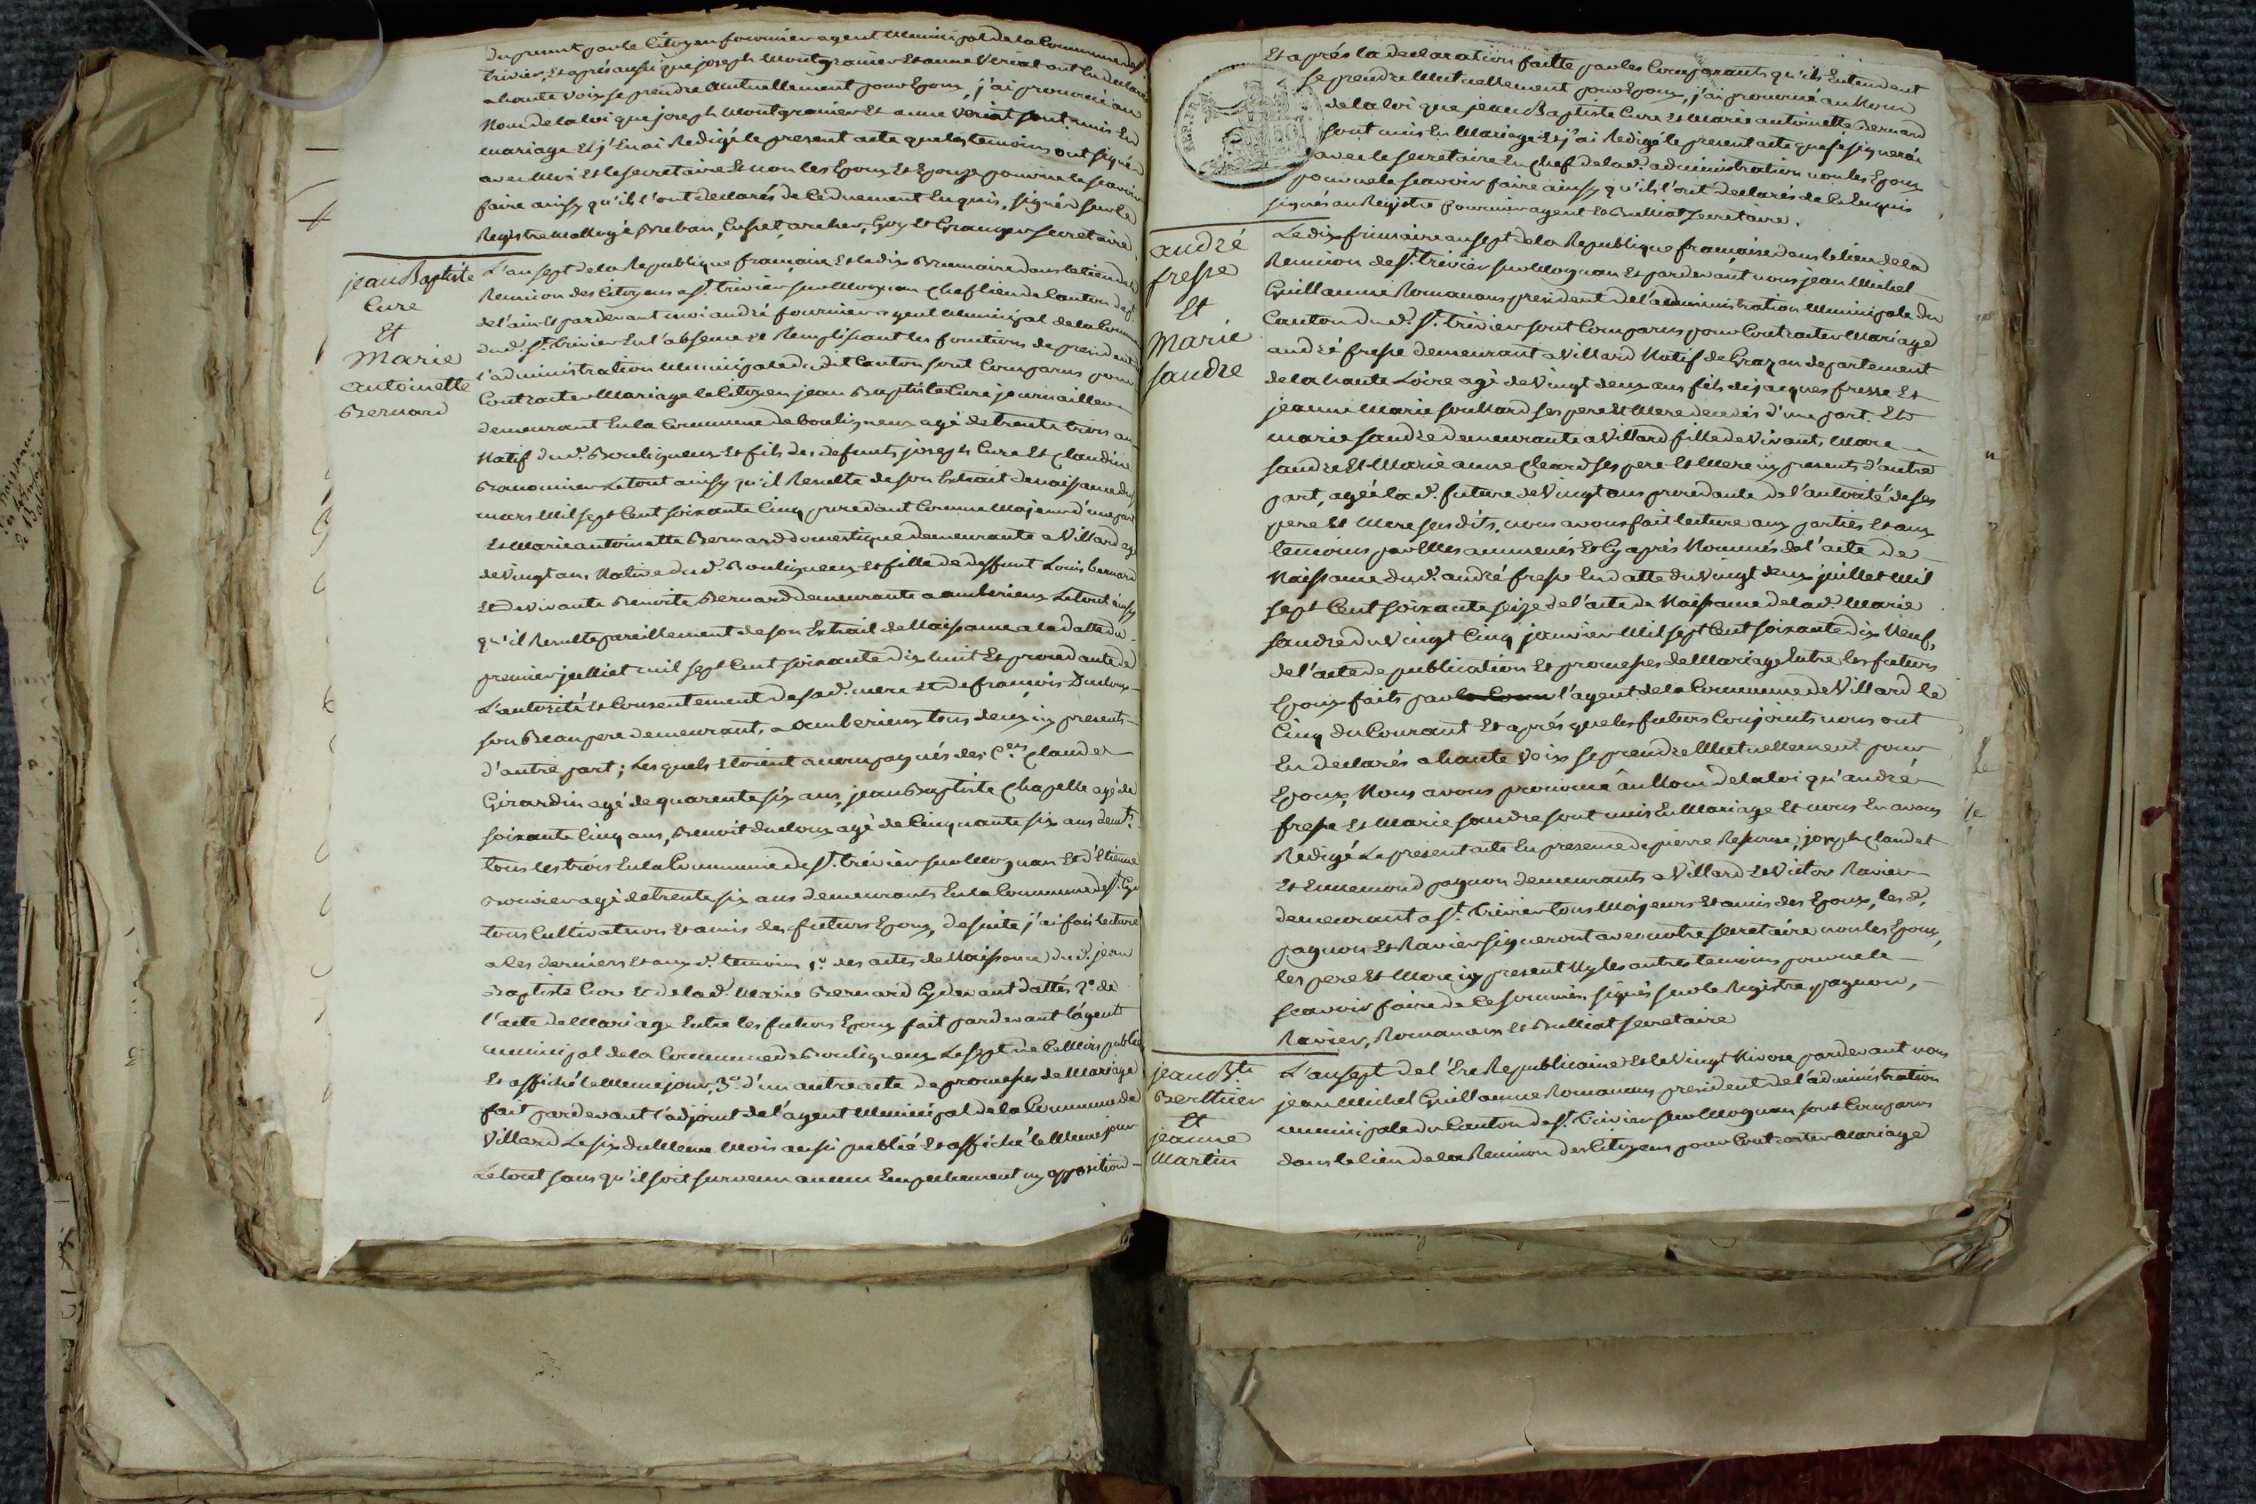 du present par le Citoyen fournier agent Municipal de la Commune de St.
trivier, Et aprés aussi que joseph Montgranier Et anne Veriat ont En declaré
a haute Voix se prendre Mutuellement pour Epoux, j'ai prononcé au
Nom de la loi que joseph Montgranier Et anne Veriat sont unis En
mariage Et j'En ai Redigé le present acte que les temoins ont signé
avec Moi Et le secretaire Et non les Epoux Et Epouse pour ne le scavoir
faire ainsy qu'ils l'ont declarés de Ce duement Enquis, signés sur le
Registre archer, Guy Et Granger secretaire
jean Baptiste
Cure
Et
Marie
antoinette
Bernard
L'an sept de la Republique française Et le dix Brumaire dans le lieu de la
Reunion des Citoyens a St. trivier sur Moignan Chef lieu de Canton dept.
de l'ain Et pardevant moi andré fournier agent Municipal de la Commune
dud. St. trivier En l'absence Et Remplissant les fonctions de president de
l'administration Municipale du dit Canton sont Comparus pour
Contracter Mariage le Citoyen jean Baptiste Cure journaillier
demeurant En la Commune de bouligneux agé de trente trois ans
Natif dud. Bouligneux Et fils des defunts joseph Cure Et Claudine
Le tout ainsy qu'il Resulte de son Extrait de naissance du
mars Mil sept Cent soixante Cinq procedant Comme Majeur d'une part
Et Marie antoinette Bernard domestique demeurante a Villard agé
de Vingt ans Native dud. Bouligneux Et fille de deffunt Louis bernard
Et de Vivante Benoite Bernard demeurante a amberieux Le tout ainsy
qu'il Resulte pareillement de son Extrait de Naissance a la datte du
premier julliet mil sept Cent soixante dix huit Et procedante de
L'autorité Et Consentement de sad. mere Et de françois Ducloux
son Beaupere demeurants a amberieux tous deux icy presents
d'autre part; Lesquels Etoient accompagnés des Cens. Claude
Girardin agé de quarente six ans, jean Baptiste Chapelle agé de
soixante Cinq ans, Benoit ducloux agé de Cinquante six ans demts.
tous les trois En la Commune de St. trivier sur Moignan Et d'Etienne
Bouvier agé de trente six ans demeurants En la Commune de St. Cyr
tous Cultivateurs Et amis des futurs Epoux, de suite j'ai fais lecture
a Ces derniers Et aux d. temoins 1°. des actes de Naissance dud. jean
Baptiste Cure Et de lad. Marie Bernard Cydevant dattés 2°. de
l'acte de Mariage Entre les futurs Epoux fait pardevant l'agent
municipal de la Commune de Bouligneux Le sept de Ce Mois publié
Et affiché le Meme jour, 3°. d'un autre acte de promesses de Mariage
fait pardevant l'adjoint de l'agent Municipal de la Commune de
Villard Le six du Meme Mois aussi publié Et affiché le Meme jour
Le tout sans qu'il soit survenu aucun Empechement ny opposition
Et aprés la declaration faitte par les Comparants qu'ils Entendent
se prendre Mutuellement pour Epoux, j'ai prononcé au Nom
de la loi que jean Baptiste Cure Et Marie antoinette Bernard
sont unis En Mariage Et j'ai Redigé le present acte que je signerai
avec le secretaire En Chef de lad. administration non les Epoux
pour ne le scavoir faire ainsy qu'ils l'ont declarés de Ce Enquis
signés au Registre fournier agent Et Bulliat secretaire.
andré
fresse
Et
Marie
sandre
Le dix frimaire an sept de la Republique française dans le lieu de la
Reunion de St. trivier sur Moignan Et pardevant nous jean Michel
Guillaume Romanans president de l'administration Municipale du
Canton dud. St. trivier sont Comparus pour Contracter Mariage
andré fresse demeurant a Villard Natif de Grazan departement
de la haute Loire agé de Vingt deux ans fils de jacques fresse Et
jeanne Marie souMard ses pere Et Mere decedés d'une part. Et
marie sandre demeurante a Villard fille de Vivants Marc
sandre Et Marie anne Cleard ses pere Et Mere icy presents d'autre
part, agée lad. future de Vingt ans procedante de l'autorité de ses
pere Et Mere susdits, nous avons fait lecture aux parties Et aux
temoins par Elles ammenés Et Cy aprés Nommés de l'acte de
Naissance dud. andré fresse En datte du Vingt deux juillet Mil
sept Cent soixante seize de l'acte de Naissance de lad. Marie
sandre du Vingt Cinq janvier Mil sept Cent soixante dix Neuf,
de l'acte de publication Et promesses de Mariage Entre les futurs
Epoux faits par la Com l'agent de la Commune de Villard le
Cinq du Courant Et aprés que les futurs Conjoints nous ont
En declarés a haute Voix se prendre Mutuellement pour
Epoux, Nous avons prononcé au Nom de la loi qu'andré
fresse Et Marie sandre sont unis En Mariage Et nous En avons
Redigé Le present acte En presence de pierre joseph Claudet
Et Ennemond pagnon demeurants a Villard Et Victor Ravier
demeurant a St. trivier tous Majeurs Et amis des Epoux, les d.
pagnon Et Ravier signeront avec notre secretaire non les Epoux,
les pere Et Mere icy present Ny les autres temoins pour ne le
scavoir faire de Ce sommés, signés sur le Registre, pagnon,
Ravier, Romanans Et Bulliat secretaire
jean Bte
Berthier
Et
jeanne
Martin
L'an sept de l'Ere Republicaine Et le Vingt Nivose pardevant nous
jean Michel Guillaume Romanans president de l'administration
municipale du Canton de St. trivier sur Moignan sont Comparus
dans le lieu de la Reunion des Citoyens pour Contracter Mariage